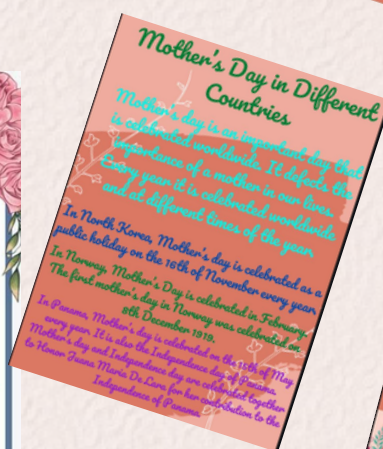 Mother's Day in Different
Countries
Mother's day is an important day that
is celebrated worldwide. It defects the
importance of a mother in our lives.
Every year it is celebrated worldwide
and at different times of the year.
In North Korea, Mother's day is celebrated as a
public holiday on the 16th of November every year
In Norway, Mother's Day is celebrated in February.
The first mother's day in Norway was celebrated on
8th December 1919.
In Panama, Mother's day is celebrated on the 15th of May
every year. It is also the Independence day of Panama.
Mother's day and Independence day are celebrated together
to Honor Juana Maria De Lara for her contribution to the
Independence of Panama.